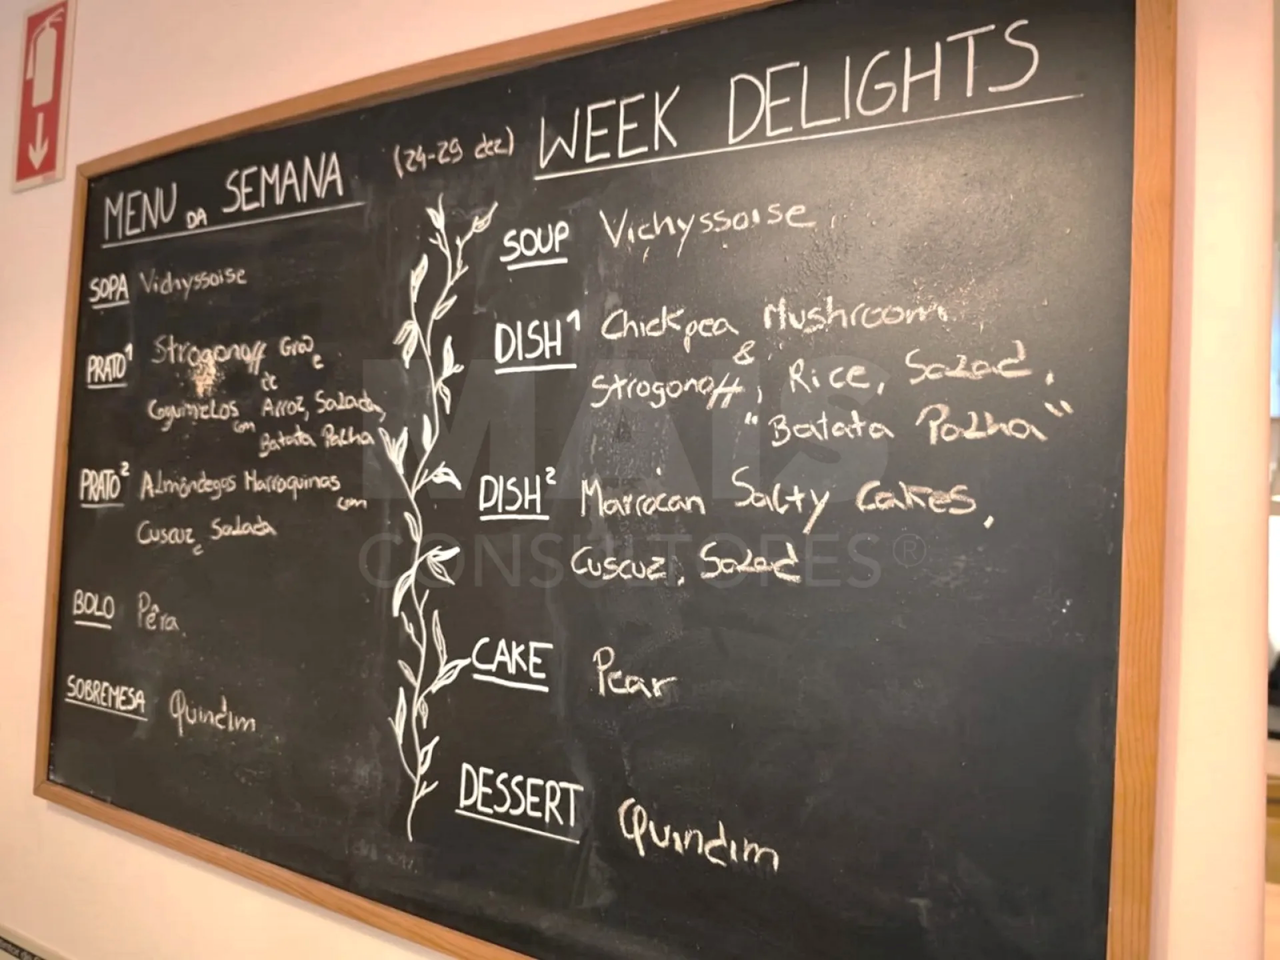 MENU DA SEMANA
(24-29 dez)
SOPA Vichyssoise
PRATO¹ Strogonoff Grão e
de
Cogumelos com Arroz, Salada,
Batata Palha
PRATO² Almôndegas Marroquinas
com
Cuscuz e Salada
BOLO Pêra
SOBREMESA Quindim
WEEK DELIGHTS
SOUP Vichyssoise
DISH¹ Chickpea & Mushroom
Strogonoff, Rice, Salad,
"Batata Palha"
DISH² Marrocan Salty Cakes,
Cuscuz, Salad
CAKE Pear
DESSERT Quindim
MAIS
CONSULTORES®